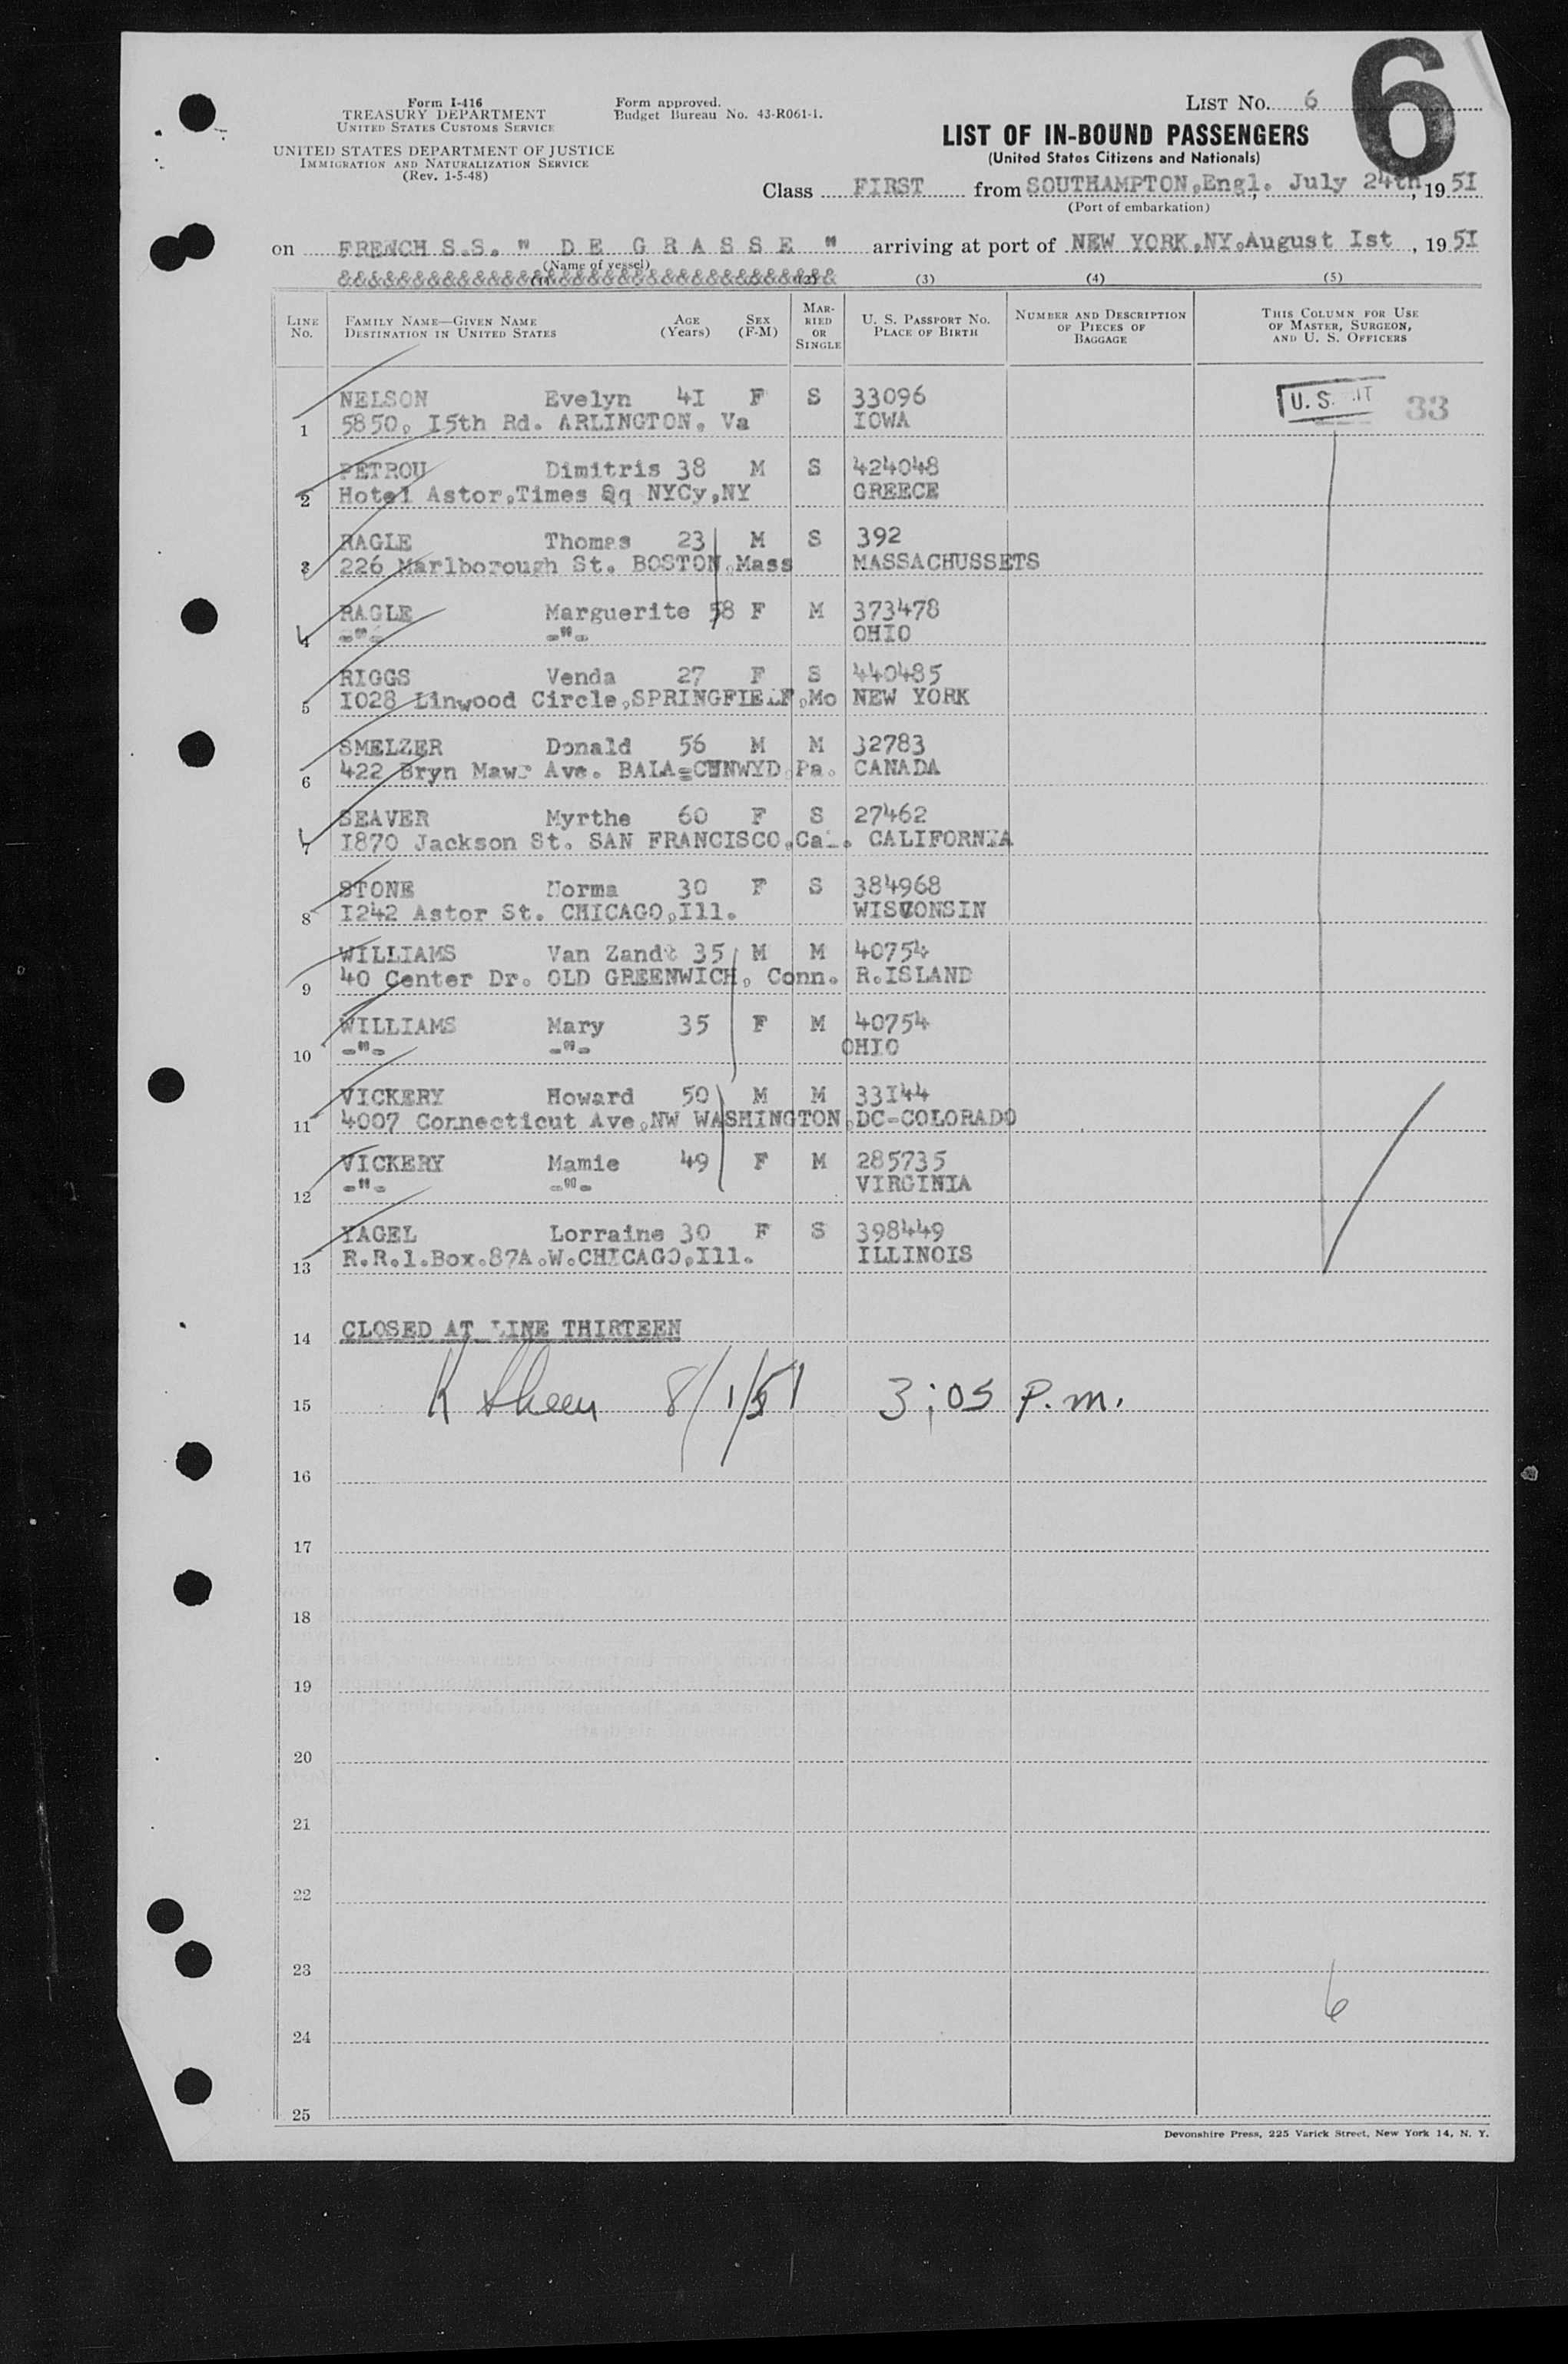 6
Form I-416
TREASURY DEPARTMENT
UNITED STATES CUSTOMS SERVICE
UNITED STATES DEPARTMENT OF JUSTICE
IMMIGRATION AND NATURALIZATION SERVICE
(Rev. 1-5-48)
Form approved.
Budget Bureau No. 43-R061-1.
LIST NO. 6
LIST OF IN-BOUND PASSENGERS
(United States Citizens and Nationals)
Class FIRST from SOUTHAMPTON,Engl. July 24th, 1951
(Port of embarkation)
on FRENCH S.S. " D E G R A S S E " arriving at port of NEW YORK,NY.August Ist, 1951
(Name of vessel)
&&&&&&&&&&&&&&&&&&&&&&&&&&&&&&&&&&
(1) (2) (3) (4) (5)
LINE NO. FAMILY NAME—GIVEN NAME DESTINATION IN UNITED STATES AGE (Years) SEX (F-M) MARRIED OR SINGLE U. S. PASSPORT NO. PLACE OF BIRTH NUMBER AND DESCRIPTION OF PIECES OF BAGGAGE THIS COLUMN FOR USE OF MASTER, SURGEON, AND U. S. OFFICERS
NELSON Evelyn 4I F S 33096 U. S. 33
1 5850, I5th Rd. ARLINGTON. Va IOWA
PETROU Dimitris 38 M S 424048
2 Hotel Astor,Times Sq NYCy,NY GREECE
RAGLE Thomas 23 M S 392
3 226 Marlborough St. BOSTON,Mass MASSACHUSSETS
RAGLE Marguerite 58 F M 373478
4 -"- -"- OHIO
RIGGS Venda 27 F S 440485
5 I028 Linwood Circle,SPRINGFIELF,Mo NEW YORK
SMELZER Donald 56 M M 32783
6 422 Bryn Mawr Ave. BALA=CHNWYD Pa. CANADA
SEAVER Myrthe 60 F S 27462
7 I870 Jackson St. SAN FRANCISCO,Cal. CALIFORNIA
STONE Norma 30 F S 384968
8 I242 Astor St. CHICAGO,Ill. WISCONSIN
WILLIAMS Van Zandt 35 M M 40754
9 40 Center Dr. OLD GREENWICH, Conn. R.ISLAND
WILLIAMS Mary 35 F M 40754
10 -"- -"- OHIO
VICKERY Howard 50 M M 33I44
11 4007 Connecticut Ave,NW WASHINGTON,DC-COLORADO
VICKERY Mamie 49 F M 285735
12 -"- -"- VIRGINIA
YAGEL Lorraine 30 F S 398449
13 R.R.1.Box.87A.W.CHICAGO,Ill. ILLINOIS
14 CLOSED AT LINE THIRTEEN
15 K 8/1/51 3:05 P.m.
16
17
18
19
20
21
22
23
6
24
25
Devonshire Press, 225 Varick Street, New York 14, N. Y.